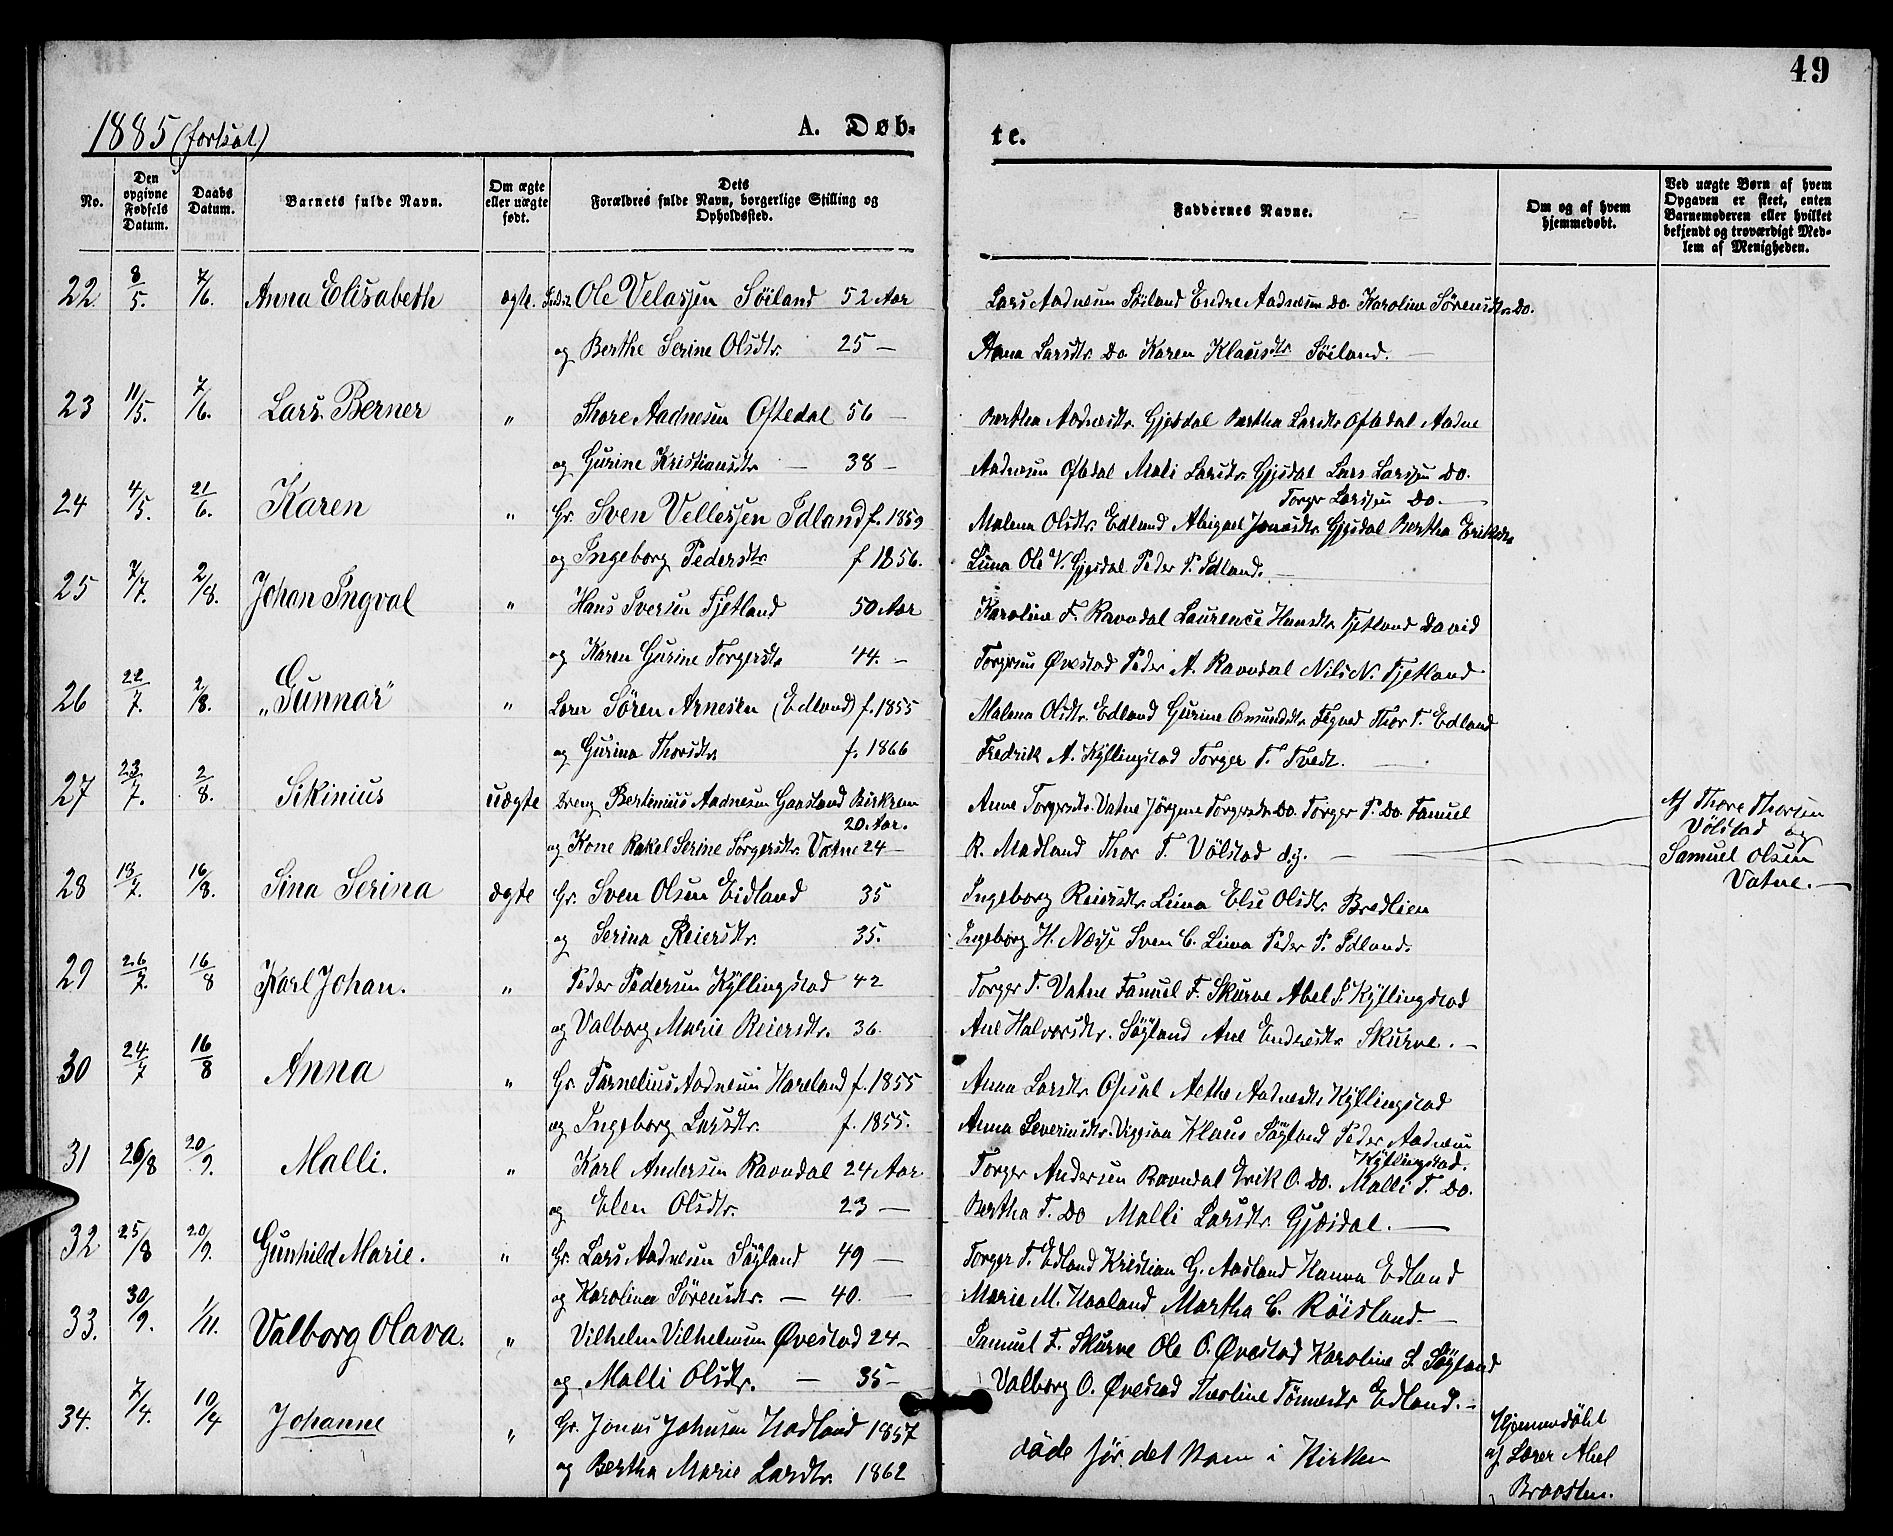 49
1885 (fortsat) A. Døb-te.
No. Den opgivne Fødsels Datum. Daabs Datum. Barnets fulde Navn. Om ægte eller uægte født. Dets Forældres fulde Navn, borgerlige Stilling og Opholdssted. Faddernes Navne. Om og af hvem hjemmedøbt. Ved uægte Børn af hvem Opgaven er skeet, enten Barnemoderen eller hvilket bekjendt og troværdigt Medlem af Menigheden.
22 8/5. 7/6. Anna Elisabeth ægte. Ole Velassen Söiland 52 Aar Lars Aadnesen Söiland Endre Aadnesen Do. Karoline Sörensdtr. Do.
og Berthe Serine Olsdtr. 25 — Anna Larsdtr. Do Karen Klausdtr Söiland. —
23 11/5. 7/6. Lars Berner " Thore Aadnesen Oftedal 56 — Bertha Aadnesdtr. Gjesdal Bertha Larsdtr Oftedal Aadne
og Gurine Kristiansdtr — 38 — Aadnesen Oftedal Mali Larsdtr. Gjesdal Lars Larssen Do.
Torger Larssen Do. —
24 4/5. 21/6. Karen " Gr. Sven Vellessen Idland f. 1859 Malena Olsdtr. Edland Abigael Jonasdtr Gjesdal Bertha Eriksdtr
og Ingeborg Pedersdtr f 1856. Lima Ole V. Gjesdal Peder P. Idland. —
25 7/7. 2/8. Johan Ingval " Hans Iversen Fjetland 50 Aar Karoline F. Ravndal Laurence Hansdtr Fjetland David
og Karen Gurine Torgersdtr 44. — Torgersen Övestad Peder A. Ravndal Nils N. Fjetland
26 22/7. 2/8. „Gunnar" " Lærer Sören Arnesen (Edland) f. 1855 Malena Olsdtr. Edland Gurine Omundsdtr Thor T. Edland
og Gurina Thorsdtr. f. 1866 Fredrik A. Kyllingstad Torger T. Tvedt. —
27 23/7. 2/8. Sikinius uægte Dreng Bertinius Aadnesen Gaasland Birkrem Anne Torgersdtr. Vatne Jörgine Torgersdtr. Do. Torger P. Do. Samuel Af Thore Thorsen
20 Aar. Völstad og
og Kone Rakel Serine Torgersdtr. Vatne 24 — R. Madland Thor T. Völstad — Samuel Olsen
Vatne. —
28 13/7. 16/8. Sina Serina ægte Gr. Sven Olsen Eidland 35 Ingeborg Reiersdtr. Lima Else Olsdtr. Bredlien
og Serina Reiersdtr. 35. Ingeborg H. Næsse Sven C. Lima Peder P. Idland.
29 26/7. 16/8 Karl Johan. " Peder Pedersen Kyllingstad 42 Torger T. Vatne Samuel F. Skurve Abel S. Kyllingstad
og Valborg Marie Reiersdtr. 36. Ane Halvorsdtr. Söyland Ane Endresdtr Skurve. —
30 24/7 16/8 Anna " Gr. Tarnelius Aadnesen Hareland f. 1855 Anna Larsdtr Opsal Aethe Aadnesdtr Kyllingstad
og Ingeborg Larsdtr. f. 1855. Anna Severinsdtr. Klaus Söyland Peder Aadnesen
Kyllingstad.
31 26/8 20/9. Malli. " Karl Andersen Ravndal 24 Aar Torger Andersen Ravndal Erik O. Do. Malli T. Do.
og Elen Olsdtr. 23 — Bertha T. Do Malli Larsdtr. Gjæsdal. —
32 25/8 20/9. Gunhild Marie. " Gr. Lars Aadnesen Söyland 49 — Torger T. Edland Kristian G. Aasland Hanna Edland
og Karoline Sörensdtr. — 40. — Marie M. Haaland Martha C. Röisland. —
33. 30/9. 1/11. Valborg Olava. " Vilhelm Vilhelmsen Övestad 24 — Samuel F. Skurve Ole O. Övestad Karoline S. Söyland
og Malli Olsdtr. — 35 — Valborg O. Övestad Theoline Tönnesdtr Edland. —
34. 7/4. 10/4 Johanne " Gr. Jonas Johnsen Hadland 1857 döde för det kom i Kirken Hjemmedöbt
og Bertha Marie Larsdtr. 1862 af Lærer Abel
Braasten.